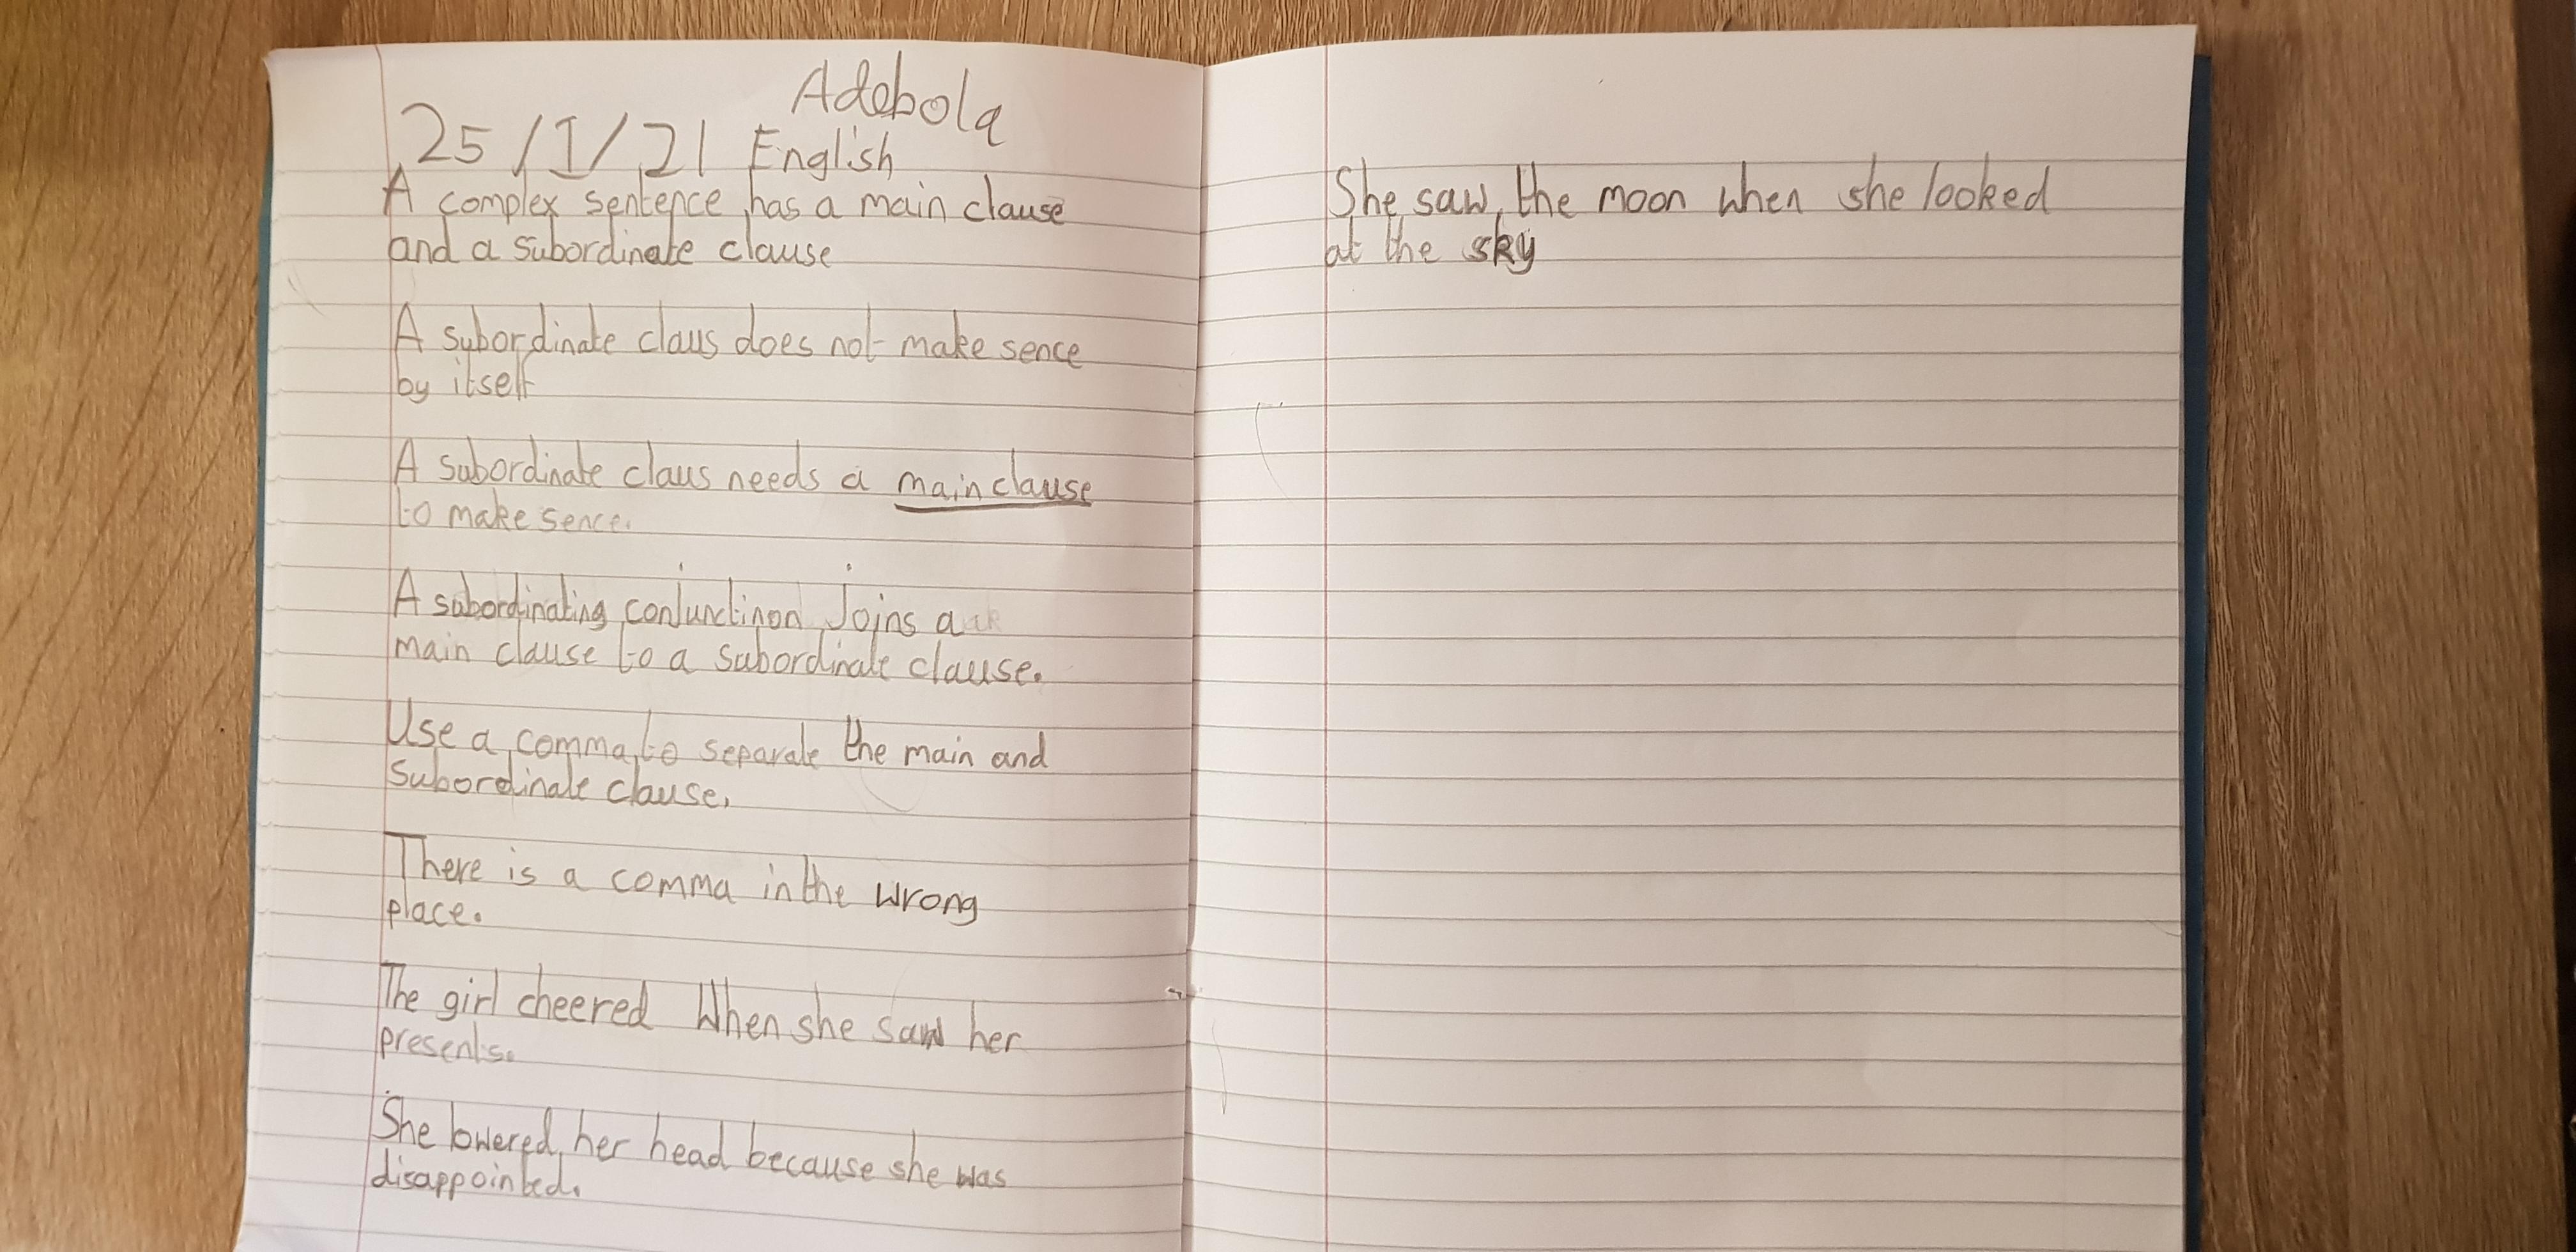 Adebola
25/1/21 English
A complex sentence has a main clause
and a subordinate clause
A subordinate claus does not make sence
by itself
A subordinate claus needs a main clause
to make sence.
A subordinating conjunctinon Joins a
main clause to a subordinate clause.
Use a comma to separate the main and
subordinate clause.
There is a comma in the wrong
place.
The girl cheered When she saw her
presents.
She lowered her head because she was
disappointed.
She saw the moon when she looked
at the sky